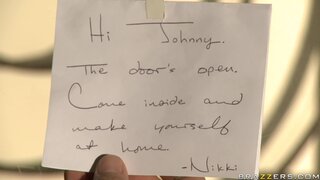 Hi Johnny.
The door's open.
Come inside and
make yourself
at home.
-Nikki
BRAZZERS.COM